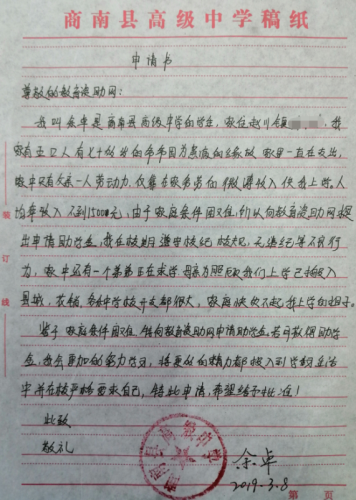 商南县高级中学稿纸
申请书
尊敬的教育资助网:
我叫余卓是商南县高级中学的学生,家住赵川镇
家有五口人有七十多岁的爷爷因为患病的缘故,家里一直在支出,
家中只有父亲一人劳动力,仅靠在家务农的微薄收入供我上学。人
均年收入不到1500元,由于家庭条件困难,特从向教育资助网提
出申请助学金,我在校期遵守校纪校规,无违纪等不良行
为,家中还有一个弟弟正在求学,母亲为照顾我们上学已搬入
县城,衣销,各种学校开支都很大,家庭快负不起我上学的担子。
鉴于家庭条件困难,特向教育资助网申请助学金。若可获得助学
金,我会更加的努力学习,将更多的精力都投入到学期生活
中并在校严格要求自己,特此申请,希望给予批准!
此致
敬礼
余卓
2019.3.8
装订线
第 页